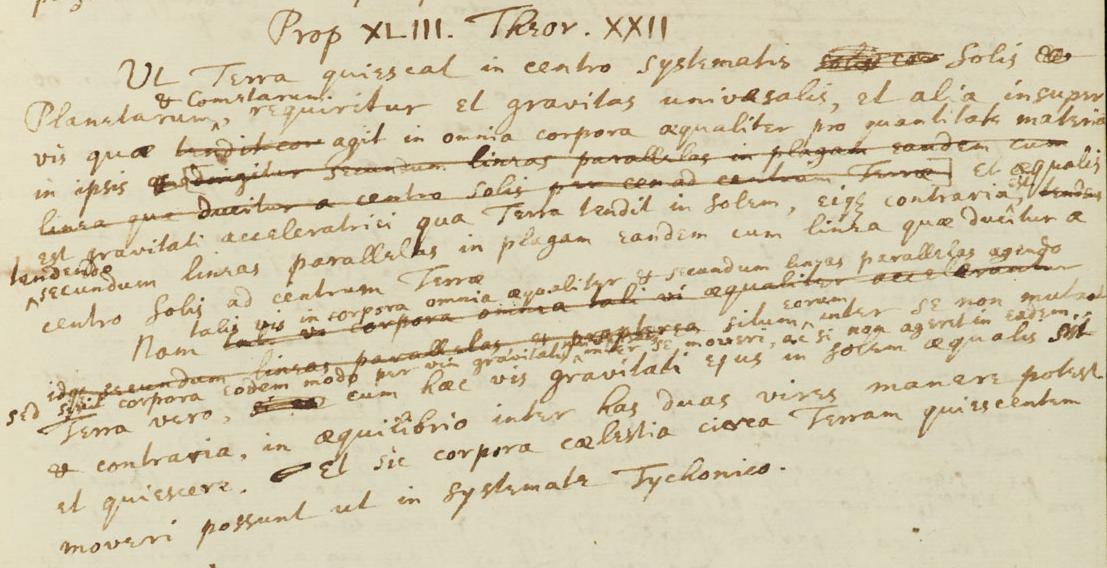 Prop XLIII. Theor. XXII
Ut Terra quiescat in centro systematis Solis
& Cometarum
Planetarum, requiritur et gravitas universalis, et alia insuper
vis quæ tendit cum agit in omnia corpora æqualiter pro quantitate materiæ
in ipsis & dirigitur secundum lineas parallelas in plagam eandem cum
linea quæ ducitur a centro Solis per cen ad centrum Terræ Et æqualis
est gravitati acceleratrici qua Terra tendit in Solem, eiqꝫ contraria, tendens
tendendo
secundum lineas parallelas in plagam eandem cum linea quæ ducitur a
centro Solis ad centrum Terræ
talis vis in corpora omnia æqualiter & secundum lineas parallelas agendo
Nam tali vi corpora omnia tali vi æqualiter accelerantur
eorum
idqꝫ secundum lineas parallelas et propterea situm inter se non mutat
sed corpora eodem modo per vim gravitatis inter se moveri, ac si non ageret in eadem.
Terra vero, cum hæc vis gravitati ejus in Solem æqualis sit
& contraria, in æquilibrio inter has duas vires manere potest
et quiescere. Et sic corpora cælestia circa Terram quiescentem
moveri possunt ut in Systemate Tychonico.